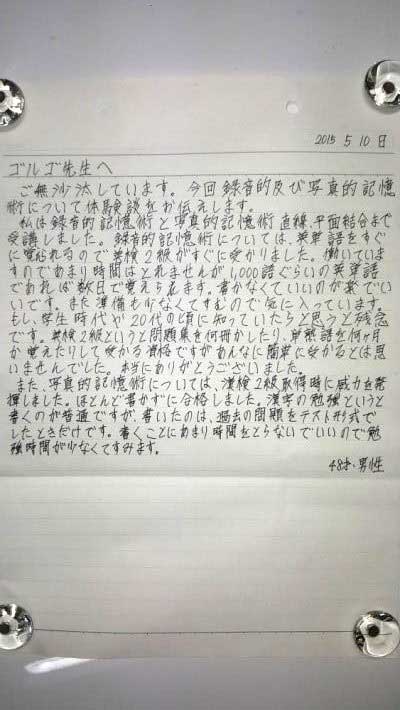 2015 5 10 日
ゴルゴ先生へ
ご無沙汰しています。今回録音的及び写真的記憶
術について体験談をお伝えします。
私は録音的記憶術と写真的記憶術 直線、平面結合まで
受講しました。録音的記憶術については、英単語をすぐ
に覚えられるので英検2級がすぐに受かりました。働いていま
すのであまり時間はとれませんが1,000語ぐらいの英単語
であれば数日で覚えられます。書かなくていいのが楽でい
いです。また準備も少なくてすむので気に入っています。
もし、学生時代や20代の頃に知っていたらと思うと残念
です。英検2級というと問題集を何冊かしたり、単熟語を何ヶ月
か覚えたりして受かる資格ですがあんなに簡単に受かるとは思
いませんでした。本当にありがとうございました。
また、写真的記憶術については、漢検2級取得時に威力を発
揮しました。ほとんど書かずに合格しました。漢字の勉強というと
書くのが普通ですが、書いたのは、過去の問題をテスト形式で
したときだけです。書くことにあまり時間をとらないでいいので勉
強時間が少なくてすみます。
48才・男性